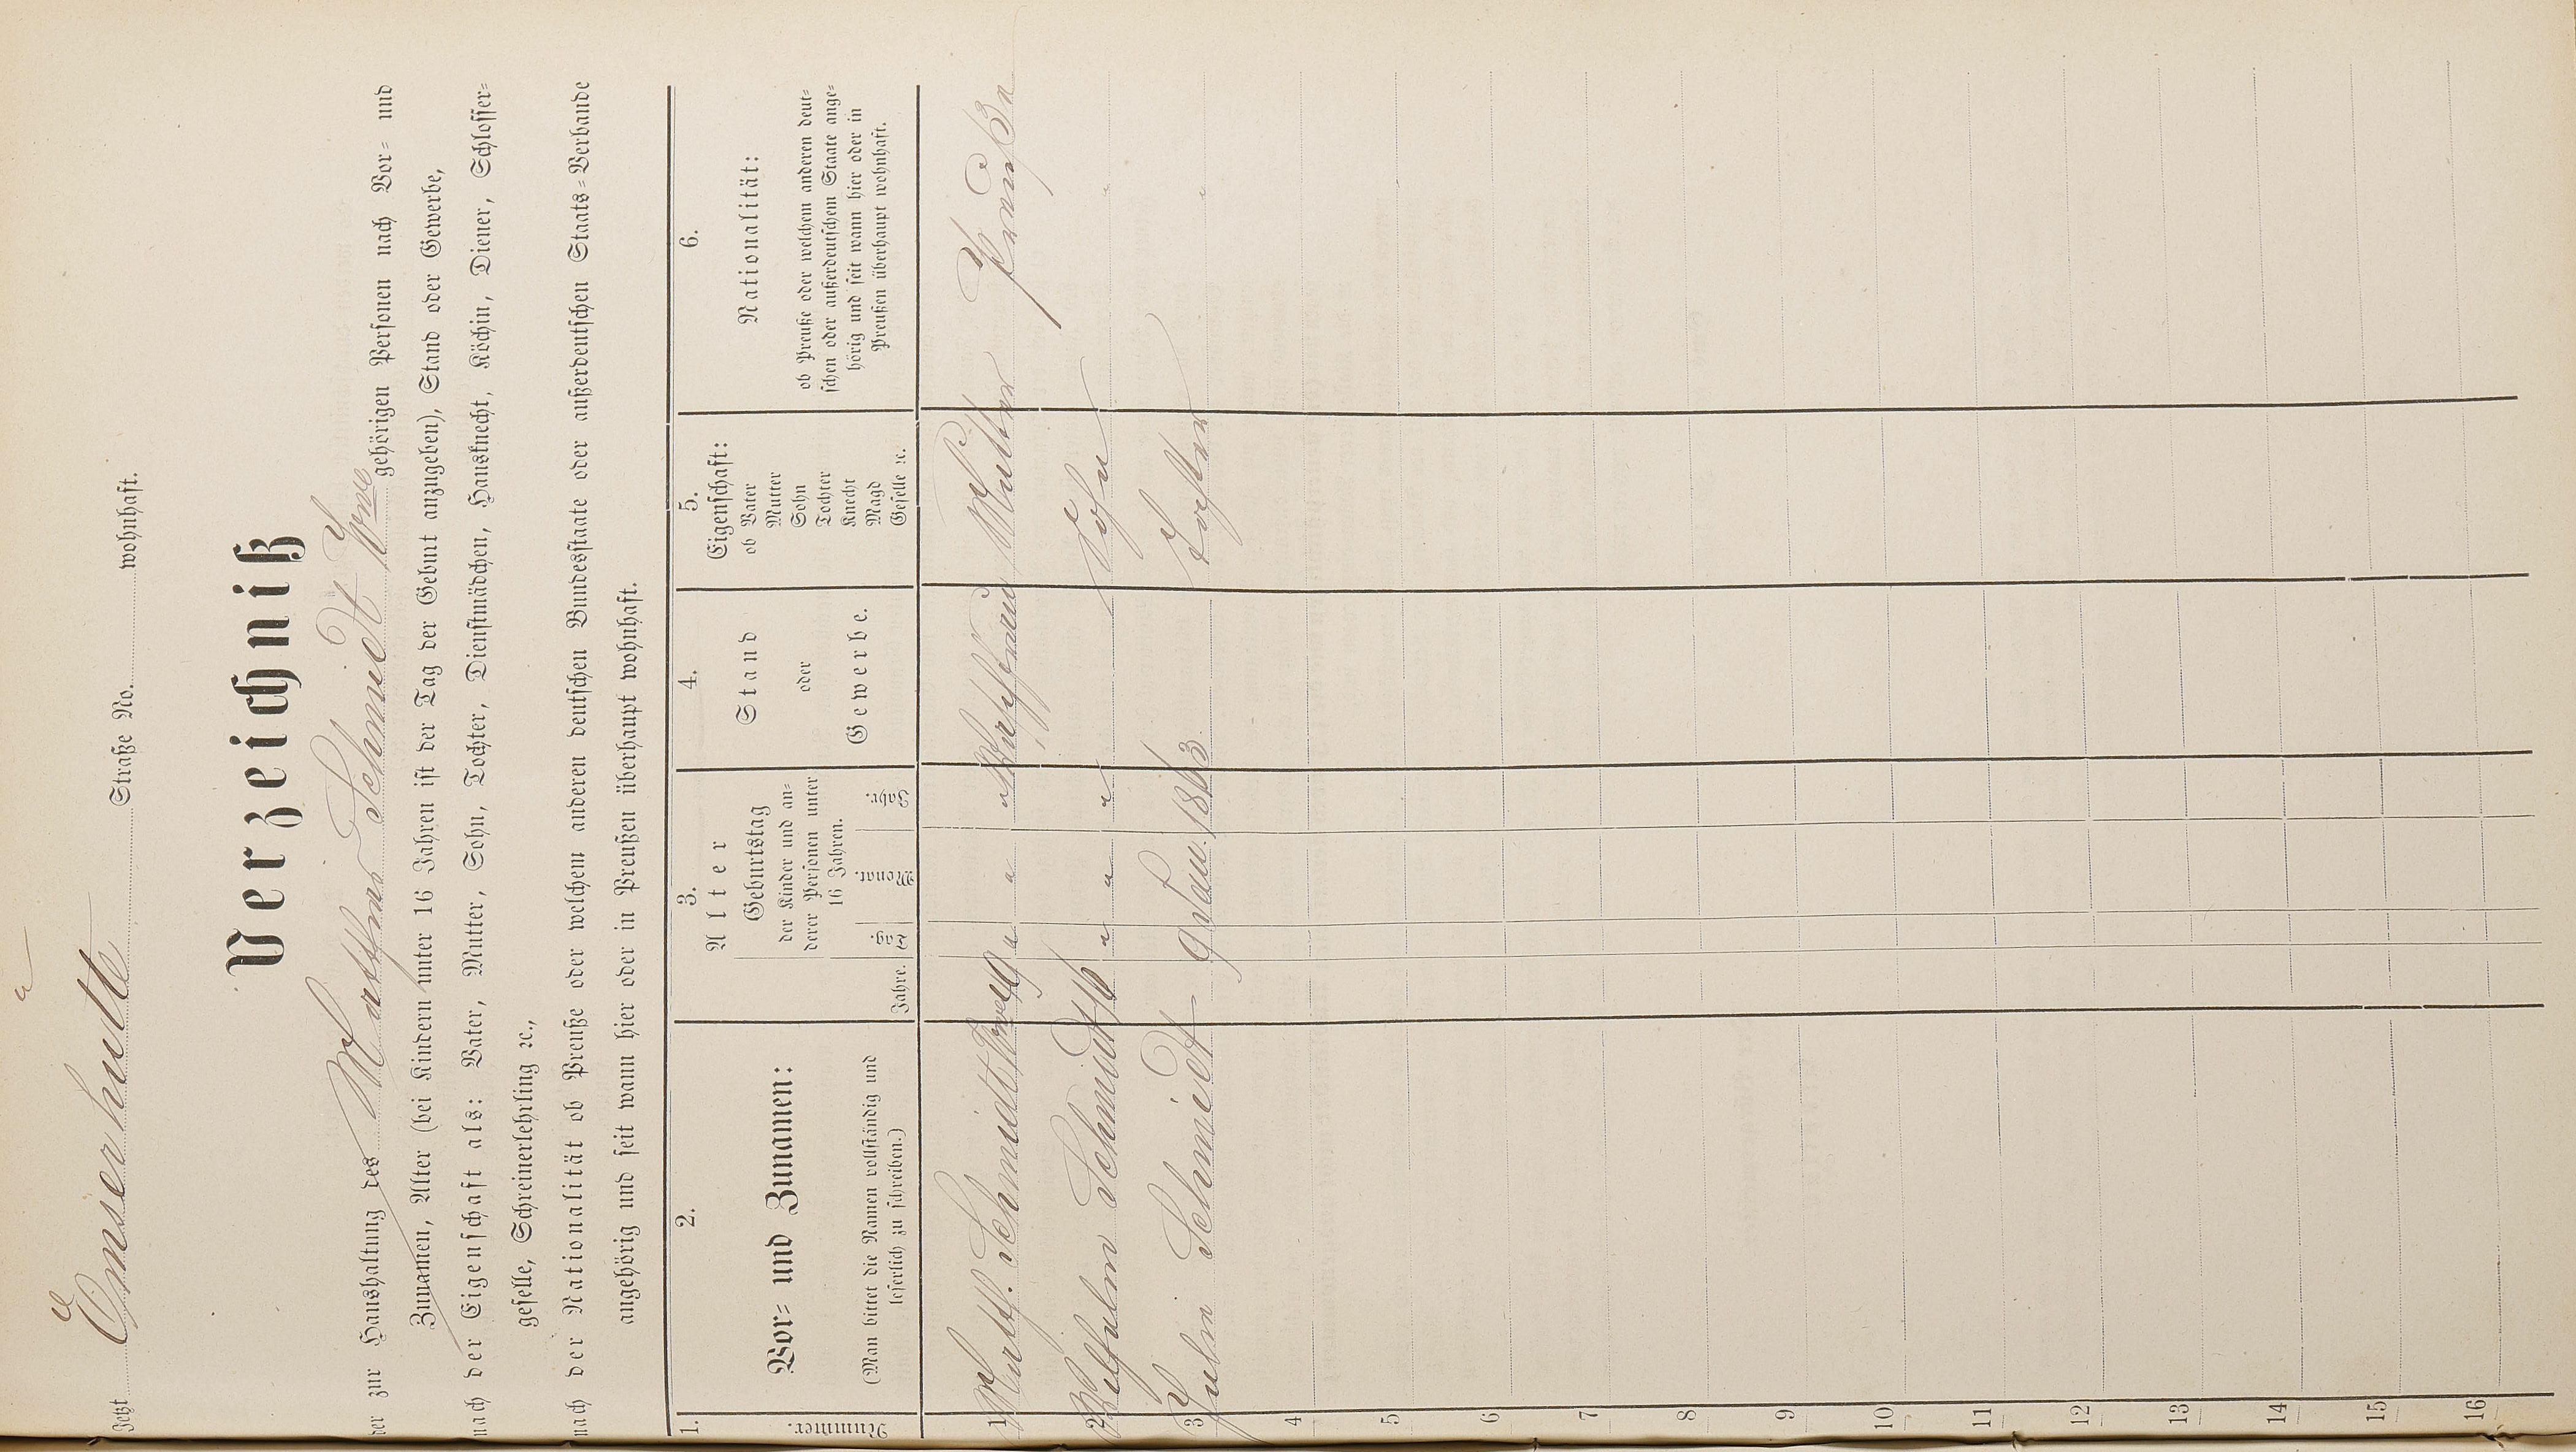 Jetzt Emserhütte Straße No. wohnhaft.
Verzeichniß
der zur Haushaltung des Matthias Schmidt Wwe gehörigen Personen nach Vor- und
Zunamen, Alter (bei Kindern unter 16 Jahren ist der Tag der Geburt anzugeben), Stand oder Gewerbe,
nach der Eigenschaft als: Vater, Mutter, Sohn, Tochter, Dienstmädchen, Hausknecht, Köchin, Diener, Schlosser-
geselle, Schreinerlehrling ꝛc.,
nach der Nationalität ob Preuße oder welchem anderen deutschen Bundesstaate oder außerdeutschen Staats-Verbande
angehörig und seit wann hier oder in Preußen überhaupt wohnhaft.
1.
Nummer.
2.
Vor- und Zunamen:
(Man bittet die Namen vollständig und
leserlich zu schreiben.)
3.
Alter
Jahre.
Geburtstag
der Kinder und an-
derer Personen unter
16 Jahren.
Tag.
Monat.
Jahr.
4.
Stand
oder
Gewerbe.
5.
Eigenschaft:
ob Vater
Mutter
Sohn
Tochter
Knecht
Magd
Geselle ꝛc.
6.
Nationalität:
ob Preuße oder welchem anderen deut-
schen oder außerdeutschen Staate ange-
hörig und seit wann hier oder in
Preußen überhaupt wohnhaft.
1 Matth. Schmidt Wwe " " " Mutter Preuße
2 Wilhelm Schmidt 16 " " " Sohn "
3 Julie Schmidt 9 Jan. 1863 Tochter "
4
5
6
7
8
9
10
11
12
13
14
15
16